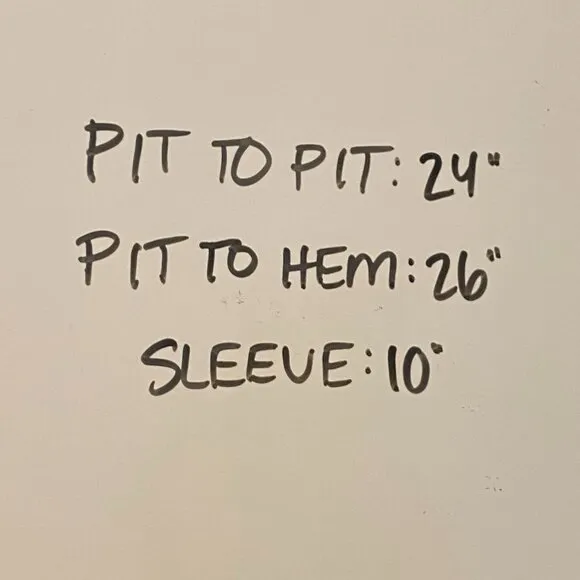 PIT TO PIT: 24"
PIT TO HEM: 26"
SLEEVE: 10"